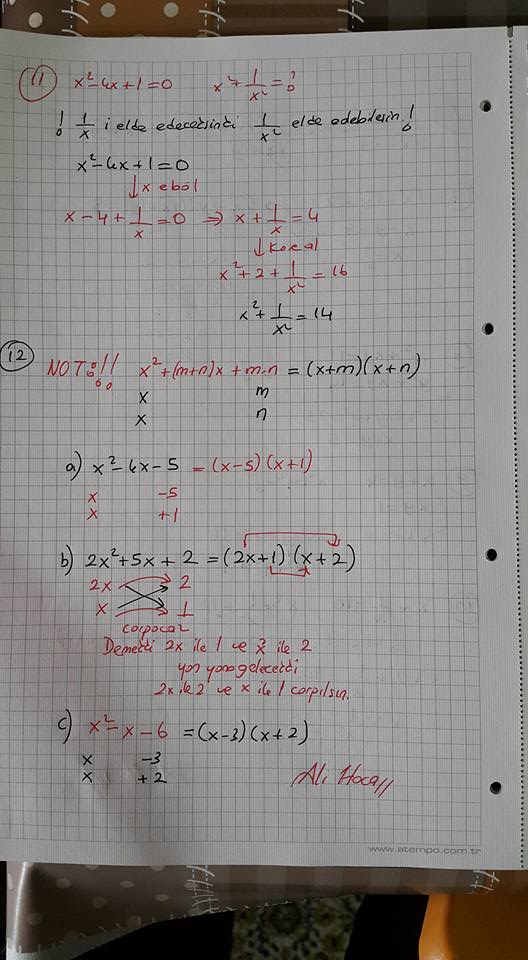 11) x² - 4x + 1 = 0 x² + 1/x² = ?
! 1/x i elde edeceksinki 1/x² elde edebilesin!
x² - 4x + 1 = 0
↓ x e böl
x - 4 + 1/x = 0 ⇒ x + 1/x = 4
↓ kare al
x² + 2 + 1/x² = 16
x² + 1/x² = 14
12) NOT:!! x² + (m+n)x + m·n = (x+m)(x+n)
x m
x n
a) x² - 4x - 5 = (x-5)(x+1)
x -5
x +1
b) 2x² + 5x + 2 = (2x+1)(x+2)
2x 2
x 1
çarpocaz
Demekki 2x ile 1 ve x ile 2
yan yana gelecekti
2x ile 2 ve x ile 1 çarpılsın.
c) x² - x - 6 = (x-3)(x+2)
x -3
x +2
Ali Hoca
www.stempo.com.tr